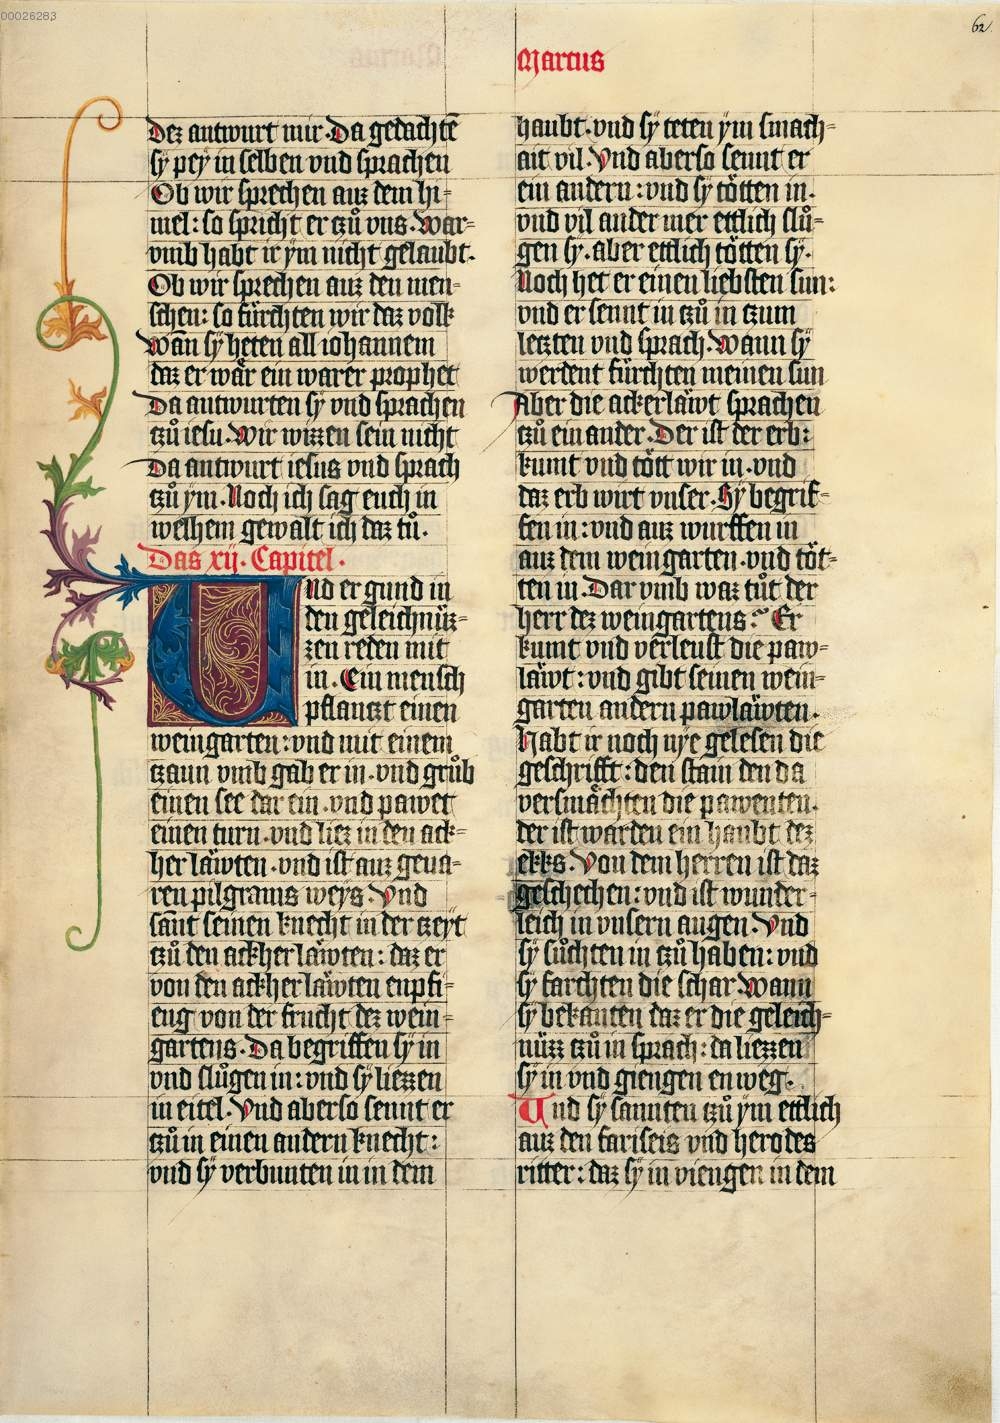 00026283
62
Marcus
Dez antwurt mir. Da gedachtē
sÿ peÿ in selben vnd sprachen
Ob wir sprechen auz dem hi=
mel: so spricht er tzů vns. War=
vmb habt ir ÿm nicht gelaubt.
Ob wir sprechen auz den men=
schen: so fürchten wir daz volk
Wan̄ sÿ heten all iohannem
daz er wär ein warer prophet
Da antwurten sÿ vnd sprachen
tzů iesu. Wir wizzen sein nicht
Da antwurt iesus vnd sprach
tzů ÿm. Noch ich sag euch in
welhem gewalt ich daz tů.
Das xij. Capitel.
Vnd er gund in
den geleichnüz=
zen reden mit
in. Ein mensch
pflantzt einen
weingarten: vnd mit einem
tzaun vmb gab er in. vnd grůb
einen see dar ein. vnd pawet
einen turn. vnd liez in den ack=
her läwten. vnd ist auz geua=
ren pilgrams weÿs. Vnd
sant seinen knecht in der tzeÿt
tzů den ackher läwten: daz er
von den ackher läwten enpfi=
eng von der frucht dez wein=
gartens. Da begriffen sÿ in
vnd slůgen in: vnd sÿ liezzen
in eitel. Vnd aberso sennt er
tzů in einen andern knecht:
vnd sÿ verbunten in in dem
haubt. vnd sÿ teten ÿm smach=
ait vil. Vnd aberso sennt er
ein andern: vnd sÿ tötten in.
vnd vil ander mer ettlich slů=
gen sÿ. aber ettlich tötten sÿ.
Noch het er einen liebsten sun:
vnd er sennt in tzů in tzum
letzten vnd sprach. Wann sÿ
werdent fürchten meinen sun
Aber die ackerläwt sprachen
tzů ein ander. Der ist der erb:
kumt vnd tött wir in. vnd
daz erb wirt vnser. Sÿ begrif=
fen in: vnd auz wurffen in
auz dem weingarten. vnd töt=
ten in. Dar vmb waz tůt der
herr dez weingartens? Er
kumt vnd verleust die paw=
läwt: vnd gibt seinen wein=
garten andern pawläwten.
Habt ir noch nÿe gelesen die
geschrifft: den stain den da
versmächten die pawenten.
der ist warden ein haubt dez
ekks. Von dem herren ist daz
geschechen: vnd ist wunder=
leich in vnsern augen. Vnd
sÿ sůchten in tzů haben: vnd
sÿ farchten die schar Wann
sÿ bekanten daz er die geleich=
nüzz tzů in sprach: da liezzen
sÿ in vnd giengen enweg.
Vnd sÿ sannten tzů ÿm ettlich
auz den fariseis vnd herodes
ritter: daz sÿ in viengen in dem